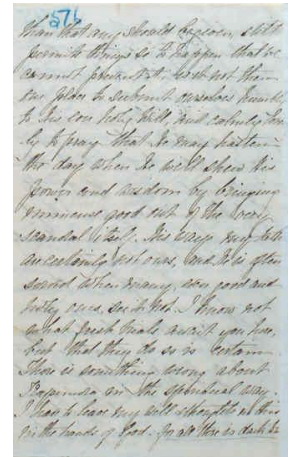 576
than that any should be given, still
permits things so to happen that we
cannot prevent it, is it not then
our place to submit ourselves humbly
to his own holy will, and calmly
ly to pray that he may hasten
the day when he will shew his
power and wisdom by bringing
immense good out of the very
scandal itself. His ways my
are certainly not ours, and he is often
when many, even good and
holy ones, see it not. I know not
what fresh trials await you here,
but that they do so is certain.
There is something wrong about
in the spiritual way
I have to leave my all thoughts at this
in the hands of God. for all there is dark